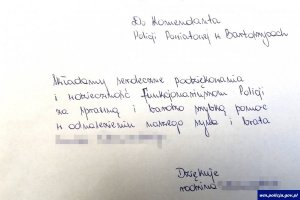 Do Komendanta
Policji Powiatowej w Bartoszycach
Składamy serdeczne podziękowania
i wdzięczność funkcjonariuszom Policji
za sprawną i bardzo szybką pomoc
w odnalezieniu naszego syna i brata
Dziękuje
rodzina
www.policja.gov.pl